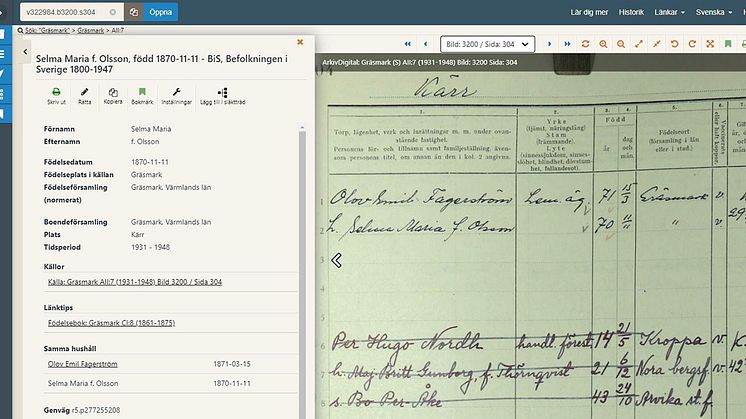 v322984.b3200.s304
Öppna
Lär dig mer Historik Länkar Svenska
Sök: "Gräsmark" > Gräsmark > AII:7
Selma Maria f. Olsson, född 1870-11-11 - BiS, Befolkningen i
Sverige 1800-1947
Skriv ut Rätta Kopiera Bokmärk Inställningar Lägg till i släktträd
Förnamn Selma Maria
Efternamn f. Olsson
Födelsedatum 1870-11-11
Födelseplats i källan Gräsmark
Födelseförsamling Gräsmark, Värmlands län
(normerat)
Boendeförsamling Gräsmark, Värmlands län
Plats Kärr
Tidsperiod 1931 - 1948
Källor
Källa: Gräsmark AII:7 (1931-1948) Bild 3200 / Sida 304
Länktips
Födelsebok: Gräsmark CI:8 (1861-1875)
Samma hushåll
Olov Emil Fagerström 1871-03-15
Selma Maria f. Olsson 1870-11-11
Genväg r5.p277255208
Bild: 3200 / Sida: 304
ArkivDigital: Gräsmark (S) AII:7 (1931-1948) Bild: 3200 Sida: 304
Kärr
1. 2. 3. 4. 5. 6. 7.
Torp, lägenhet, verk och inrättningar m. m. under ovan-
stående fastighet.
Personens för- och tillnamn samt familjeställning, även-
som personens titel, om annan än den i kol. 2 angivna.
Yrke
(tjänst, näringsfång)
Stam
(främmande).
Lyte
(sinnessjukdom, sinnes-
slöhet, blindhet, dövstum-
het, fallandesot).
Född
år
dag
och
mån.
Födelseort
(församling i län
eller i stad.)
1 Olov Emil Fagerström Lem. äg. 71 15/3 Gräsmark v.
2 h. Selma Maria f. Olsson 70 11/11 " v.
3
Per Hugo Nordh handl. förest. 14 21/5 Kroppa v.
h. Maj-Britt Gunborg, f. Thörnqvist 21 6/12 Nora bergsf. v.
s. Bo Per-Åke 43 24/10 Arvika st.f.